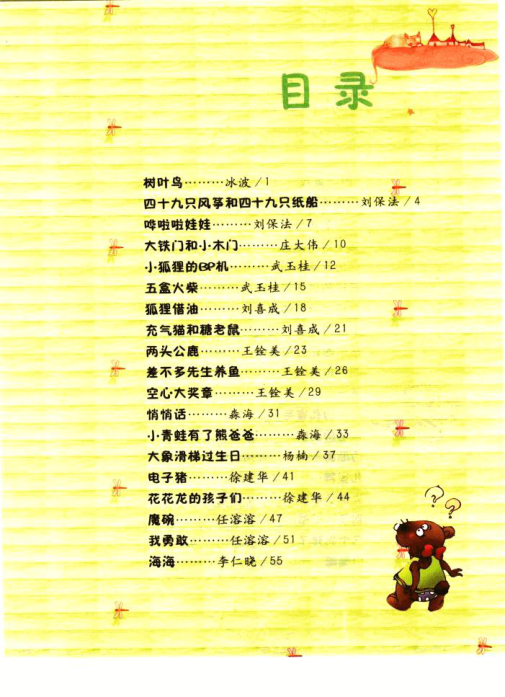 目录
树叶鸟………冰波/1
四十九只风筝和四十九只纸船………刘保法/4
哗啦啦娃娃………刘保法/7
大铁门和小木门………庄大伟/10
小狐狸的BP机………武玉桂/12
五盒火柴………武玉桂/15
狐狸借油………刘喜成/18
充气猫和糖老鼠………刘喜成/21
两头公鹿………王铨美/23
差不多先生养鱼………王铨美/26
空心大奖章………王铨美/29
悄悄话………森海/31
小青蛙有了熊爸爸………森海/33
大象滑梯过生日………杨楠/37
电子猪………徐建华/41
花花龙的孩子们………徐建华/44
魔碗………任溶溶/47
我勇敢………任溶溶/51
海海………李仁晓/55
? ?